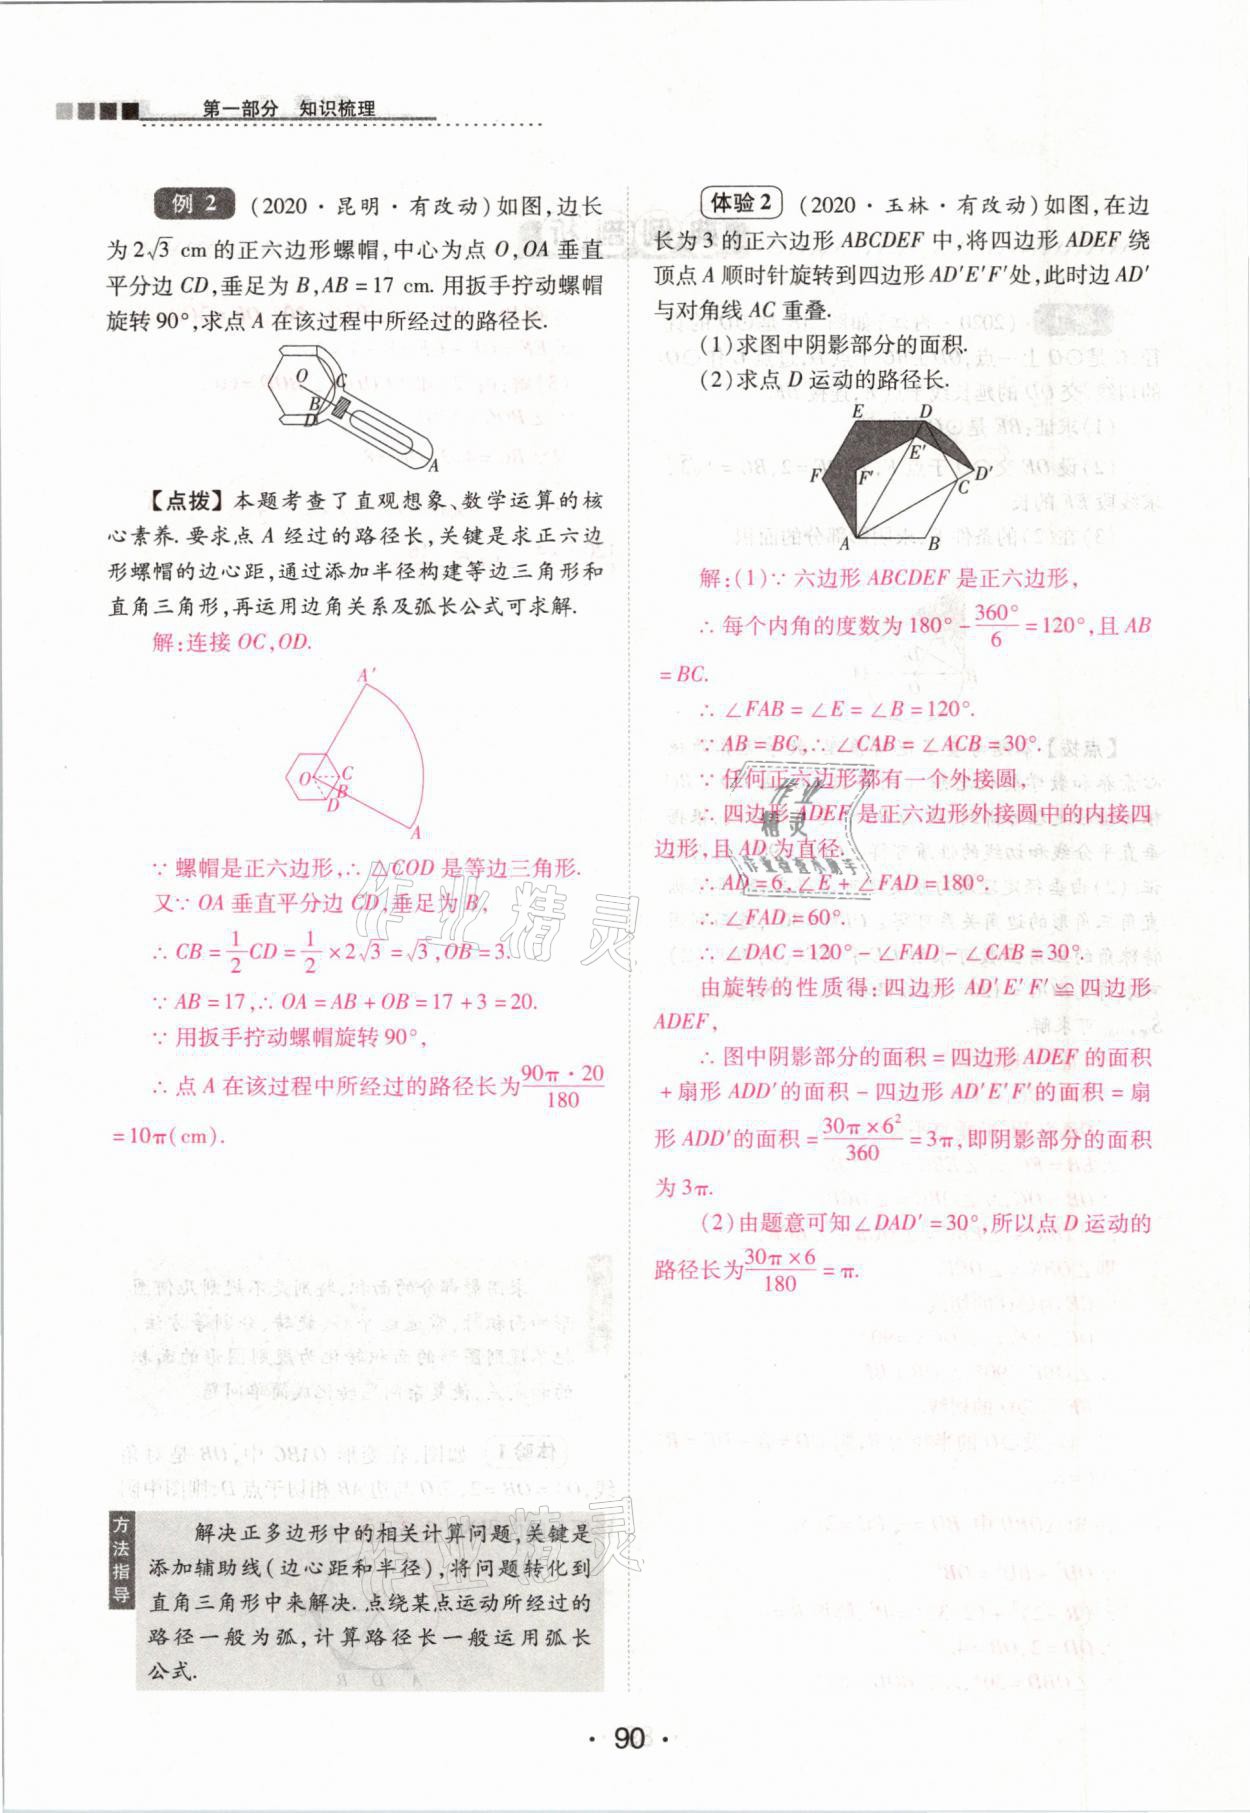 第一部分 知识梳理
例 2 (2020·昆明·有改动)如图,边长
为2√3 cm的正六边形螺帽,中心为点 O,OA 垂直
平分边 CD,垂足为 B,AB=17 cm. 用扳手拧动螺帽
旋转90°,求点 A 在该过程中所经过的路径长.
O C B D A
【点拨】本题考查了直观想象、数学运算的核
心素养. 要求点 A 经过的路径长,关键是求正六边
形螺帽的边心距,通过添加半径构建等边三角形和
直角三角形,再运用边角关系及弧长公式可求解.
解:连接 OC,OD.
A′
O C
B
D
A
∵ 螺帽是正六边形,∴ △COD 是等边三角形.
又∵ OA 垂直平分边 CD,垂足为 B,
∴ CB=1/2CD=1/2×2√3=√3,OB=3.
∵ AB=17,∴ OA=AB+OB=17+3=20.
∵ 用扳手拧动螺帽旋转90°,
∴ 点 A 在该过程中所经过的路径长为90π·20/180
=10π(cm).
方法指导
解决正多边形中的相关计算问题,关键是
添加辅助线(边心距和半径),将问题转化到
直角三角形中来解决. 点绕某点运动所经过的
路径一般为弧,计算路径长一般运用弧长
公式.
体验2 (2020·玉林·有改动)如图,在边
长为3的正六边形 ABCDEF 中,将四边形 ADEF 绕
顶点 A 顺时针旋转到四边形 AD′E′F′处,此时边 AD′
与对角线 AC 重叠.
(1)求图中阴影部分的面积.
(2)求点 D 运动的路径长.
E D
E′
F F′ D′
C
A B
解:(1)∵ 六边形 ABCDEF 是正六边形,
∴ 每个内角的度数为180°-360°/6=120°,且 AB
=BC.
∴ ∠FAB=∠E=∠B=120°.
∵ AB=BC,∴ ∠CAB=∠ACB=30°.
∵ 任何正六边形都有一个外接圆,
∴ 四边形 ADEF 是正六边形外接圆中的内接四
边形,且 AD 为直径.
∴ AD=6,∠E+∠FAD=180°.
∴ ∠FAD=60°.
∴ ∠DAC=120°-∠FAD-∠CAB=30°.
由旋转的性质得:四边形 AD′E′F′≌四边形
ADEF,
∴ 图中阴影部分的面积=四边形 ADEF 的面积
+扇形 ADD′的面积-四边形 AD′E′F′的面积=扇
形 ADD′的面积=30π×6²/360=3π,即阴影部分的面积
为3π.
(2)由题意可知∠DAD′=30°,所以点 D 运动的
路径长为30π×6/180=π.
作业
精灵
作业检查小助手
作业精灵
作业精灵
· 90 ·